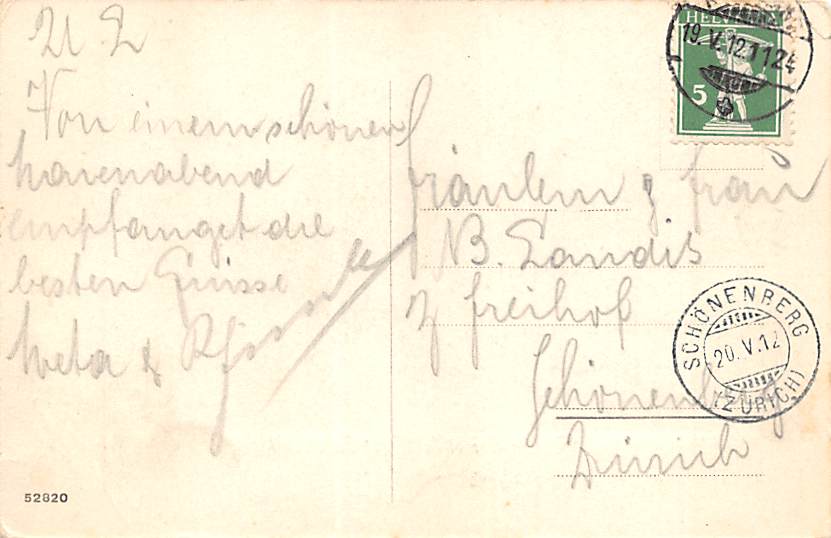 U. L
Von einem schönen
Maienabend
empfanget die
besten Grüsse
Meta &
Fräulein & Frau
B. Landis
z Freihof
Schönenberg
Zürich
52820
HELVETIA
5
19.V.12.11
SCHÖNENBERG
20.V.12
(ZÜRICH)